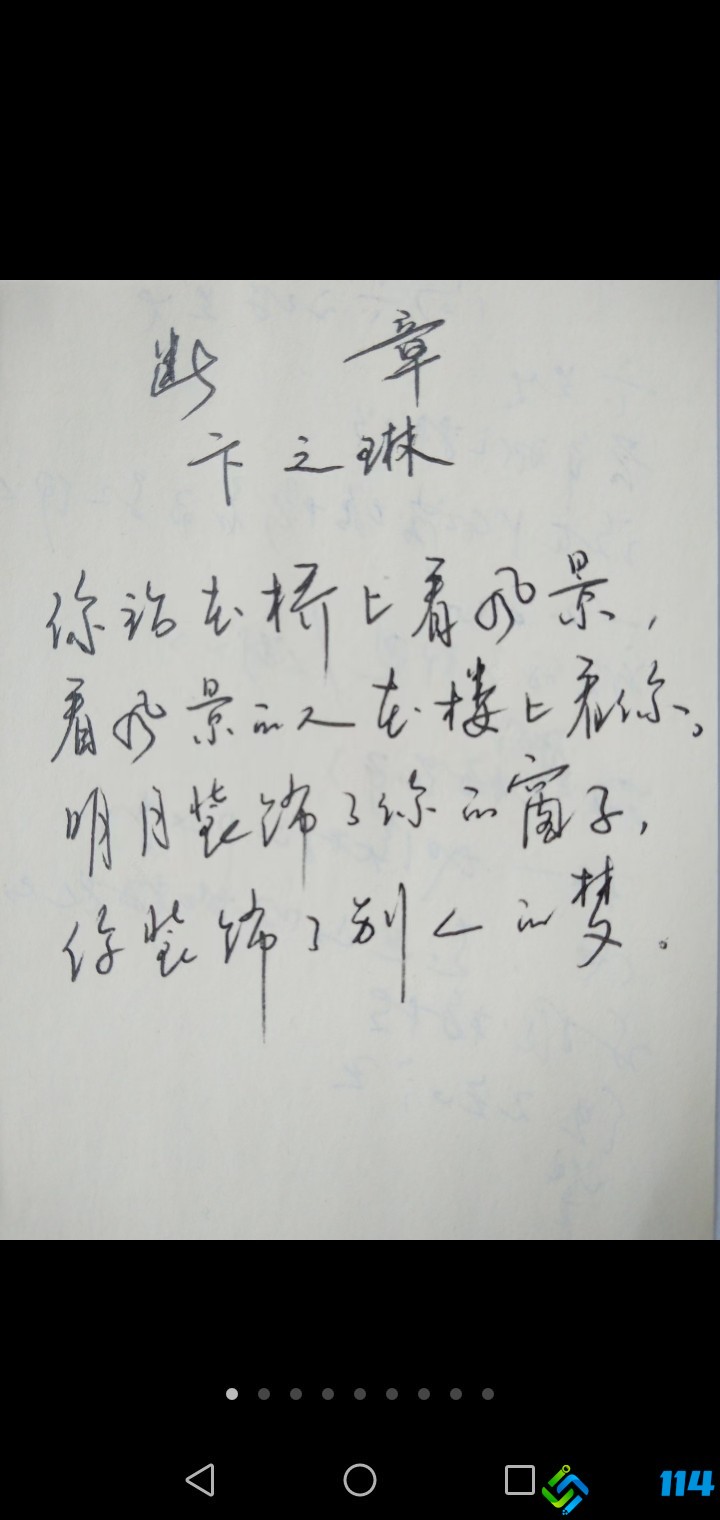 断章
卞之琳
你站在桥上看风景，
看风景的人在楼上看你。
明月装饰了你的窗子，
你装饰了别人的梦。
114